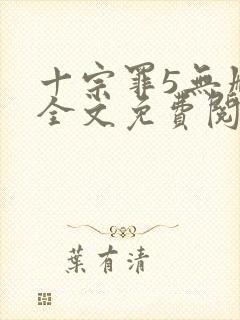 十宗罪5無
全文免費閱
葉有清